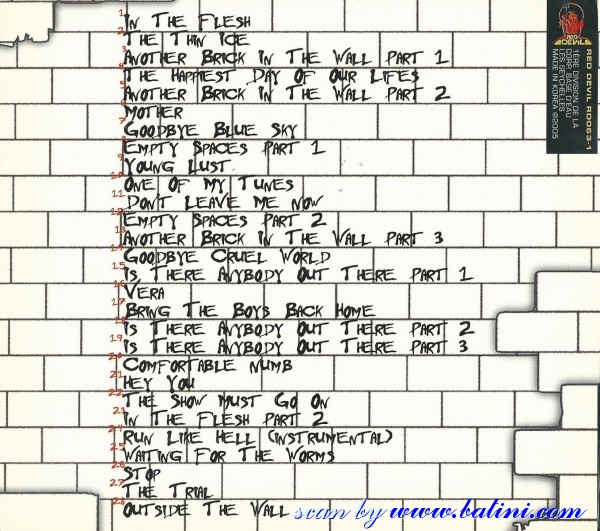 1 IN THE FLESH
2 THE THIN ICE
3 ANOTHER BRICK IN THE WALL PART 1
4 THE HAPPIEST DAY OF OUR LIFES
5 ANOTHER BRICK IN THE WALL PART 2
6 MOTHER
7 GOODBYE BLUE SKY
8 EMPTY SPACES PART 1
9 YOUNG LUST
10 ONE OF MY TUNES
11 DON'T LEAVE ME NOW
12 EMPTY SPACES PART 2
13 ANOTHER BRICK IN THE WALL PART 3
14 GOODBYE CRUEL WORLD
15 IS THERE ANYBODY OUT THERE PART 1
16 VERA
17 BRING THE BOYS BACK HOME
18 IS THERE ANYBODY OUT THERE PART 2
19 IS THERE ANYBODY OUT THERE PART 3
20 COMFORTABLE NUMB
21 HEY YOU
22 THE SHOW MUST GO ON
23 IN THE FLESH PART 2
24 RUN LIKE HELL (INSTRUMENTAL)
25 WAITING FOR THE WORMS
26 STOP
27 THE TRIAL
28 OUTSIDE THE WALL
RED DEVIL
RED DEVIL R0063-1
1ÈRE DIVISION DE LA
CORP. BASE D'EAU
LES SEYCHELLES
MADE IN KOREA ©2005
scan by www.batini.com